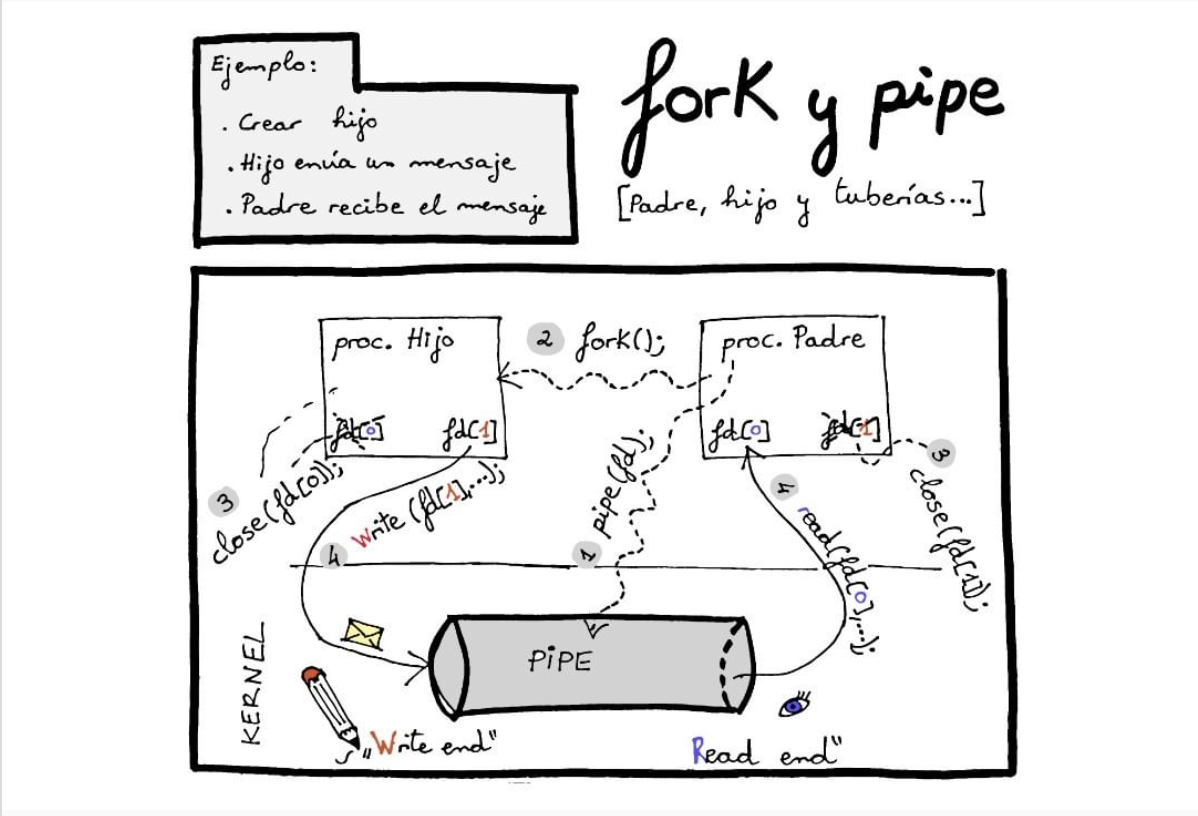 Ejemplo:
. Crear hijo
. Hijo envía un mensaje
. Padre recibe el mensaje
fork y pipe
[Padre, hijo y tuberías...]
proc. Hijo
2 fork();
proc. Padre
fd[0]
fd[1]
fd[0]
fd[1]
3
close(fd[0]);
4
Write (fd[1],...);
1 pipe(fd);
4
read(fd[0],...);
3
close(fd[1]);
KERNEL
PiPE
"Write end"
Read end"